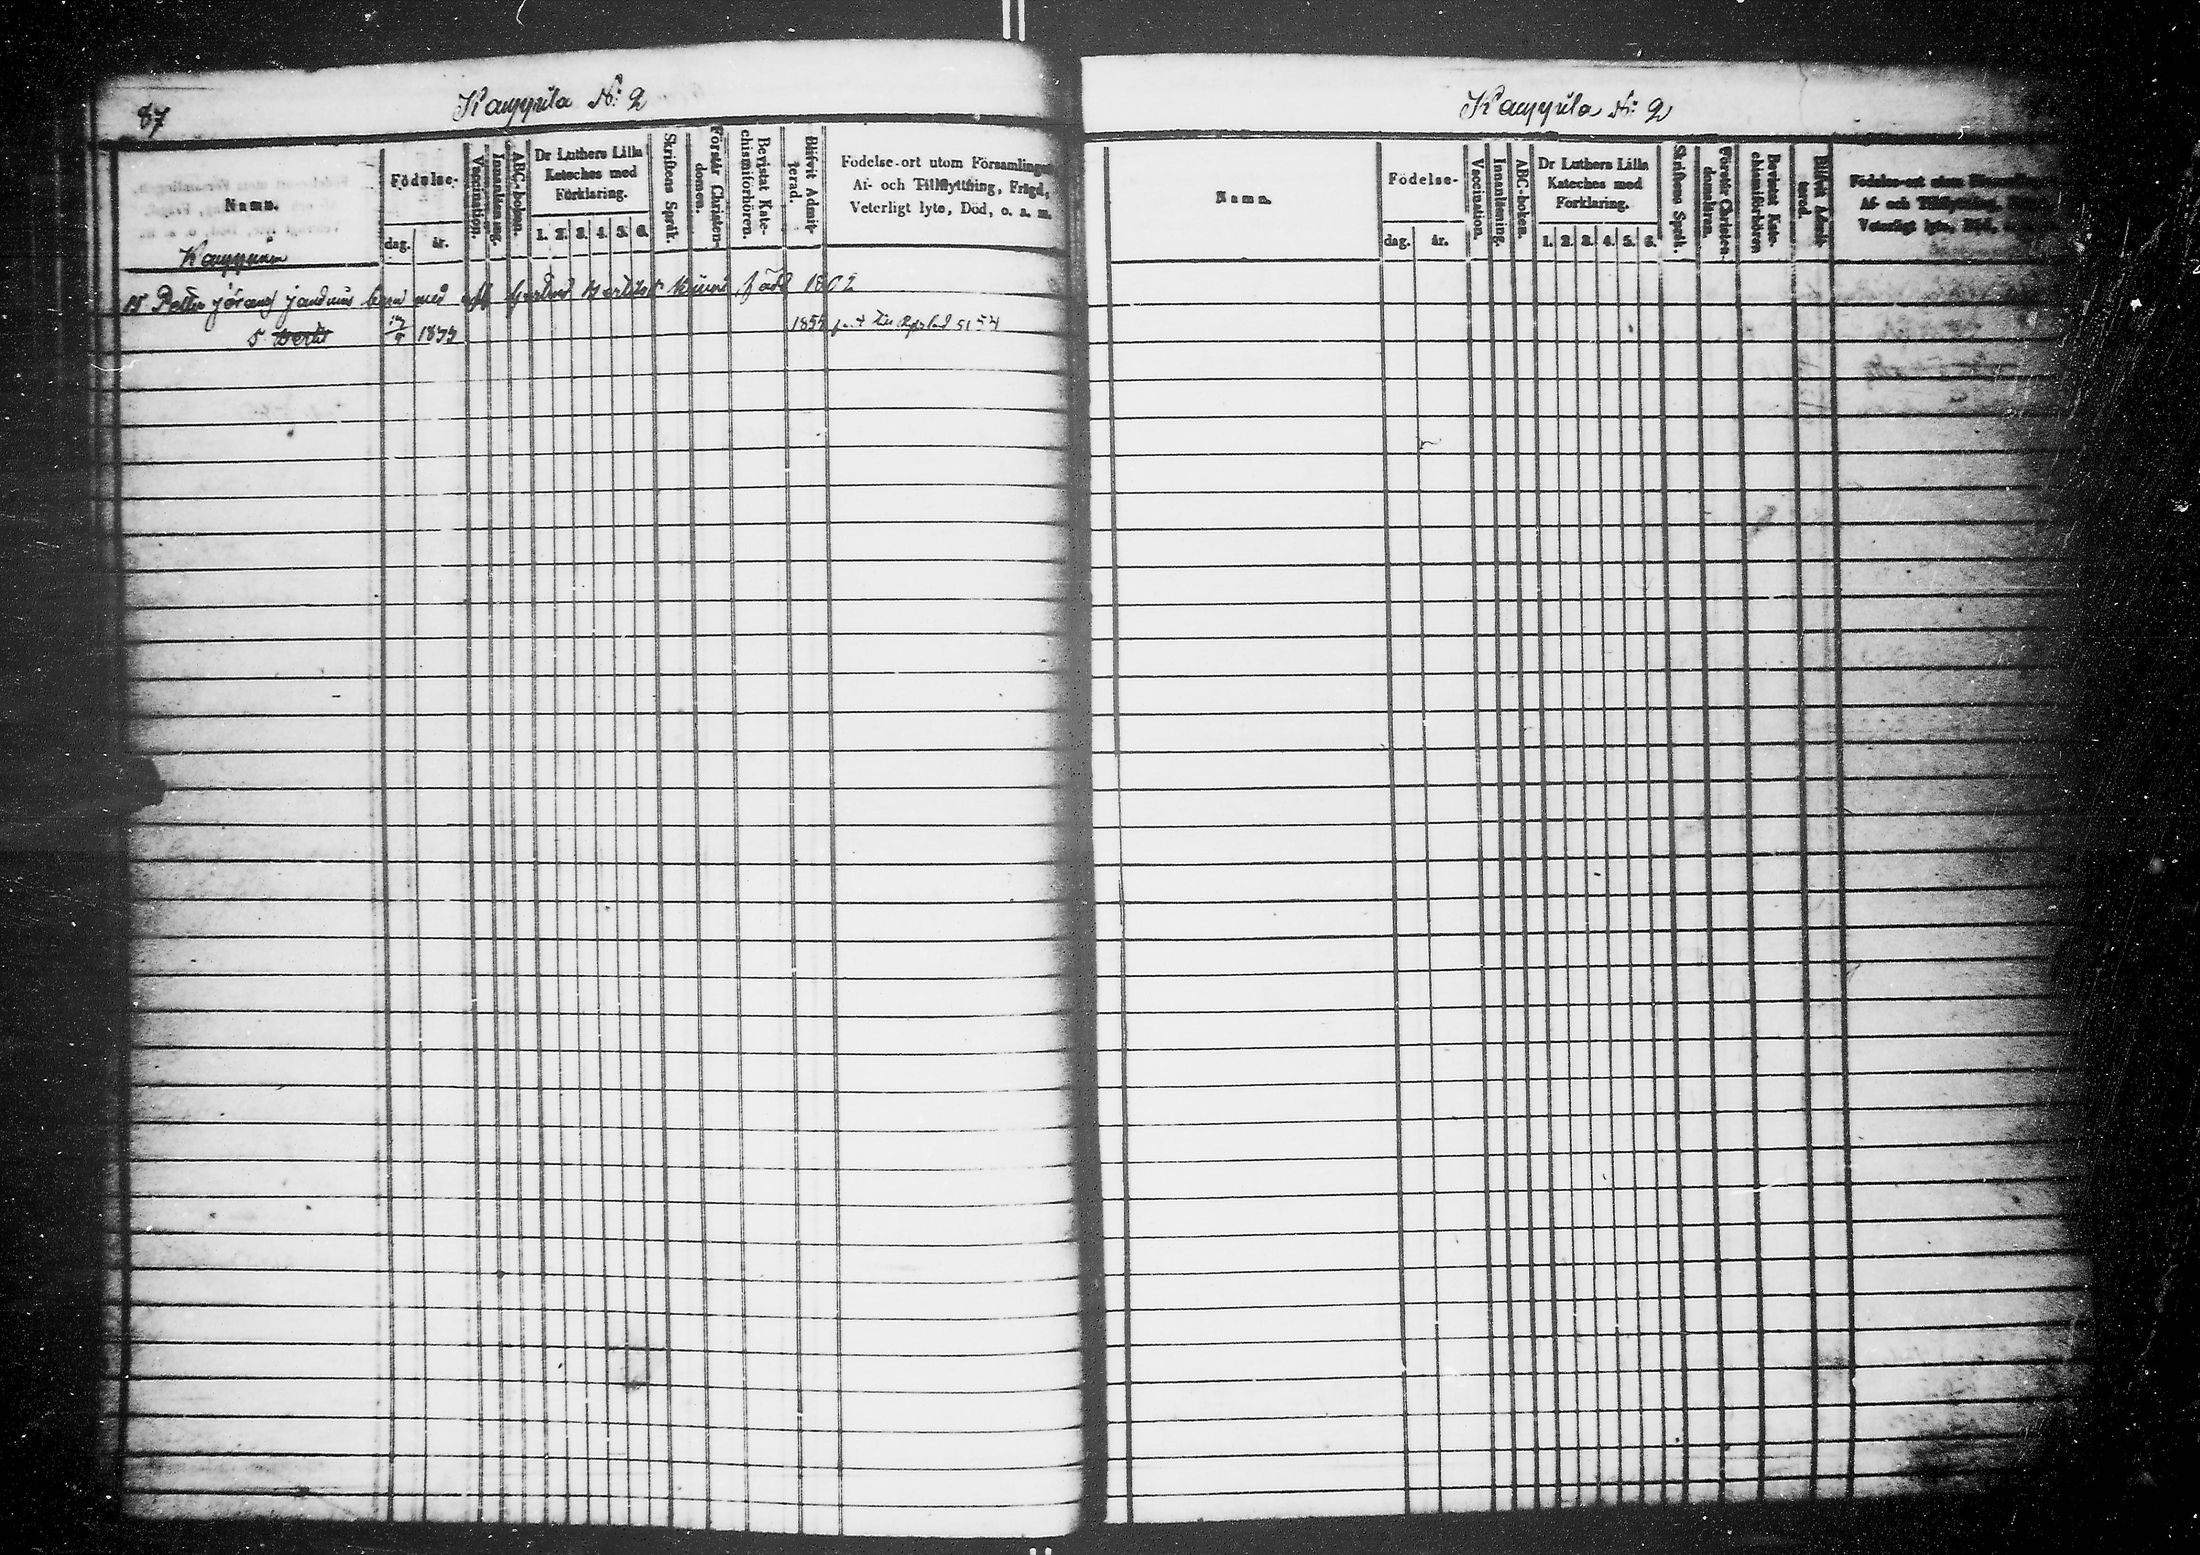 87
Kauppila N: 2
Namn.
Födelse-
dag. år.
Vaccination.
Innanläsning.
ABC-boken.
Dr Luthers Lilla Kateches med Förklaring.
1. 2. 3. 4. 5. 6.
Skriftens Språk.
Förstår Christendomen.
Bevistat Katechismiförhören.
Blifvit Admitterad.
Födelse-ort utom Församlingen
Af- och Tillflyttning, Frägd,
Veterligt lyte, Död, o. a. m.
Kauppinen
Petter
med
född 1802
S. Bertil 1835 1854
Kauppila N: 2
Namn.
Födelse-
dag. år.
Vaccination.
Innanläsning.
ABC-boken.
Dr Luthers Lilla Kateches med Forklaring.
1. 2. 3. 4. 5. 6.
Skriftens Språk.
Förstår Christendomsläran.
Bevistat Katechismiförhören
Blifvit Admitterad.
Födelse-ort utom
Af- och Tillflyttning,
Veterligt lyte, Död,